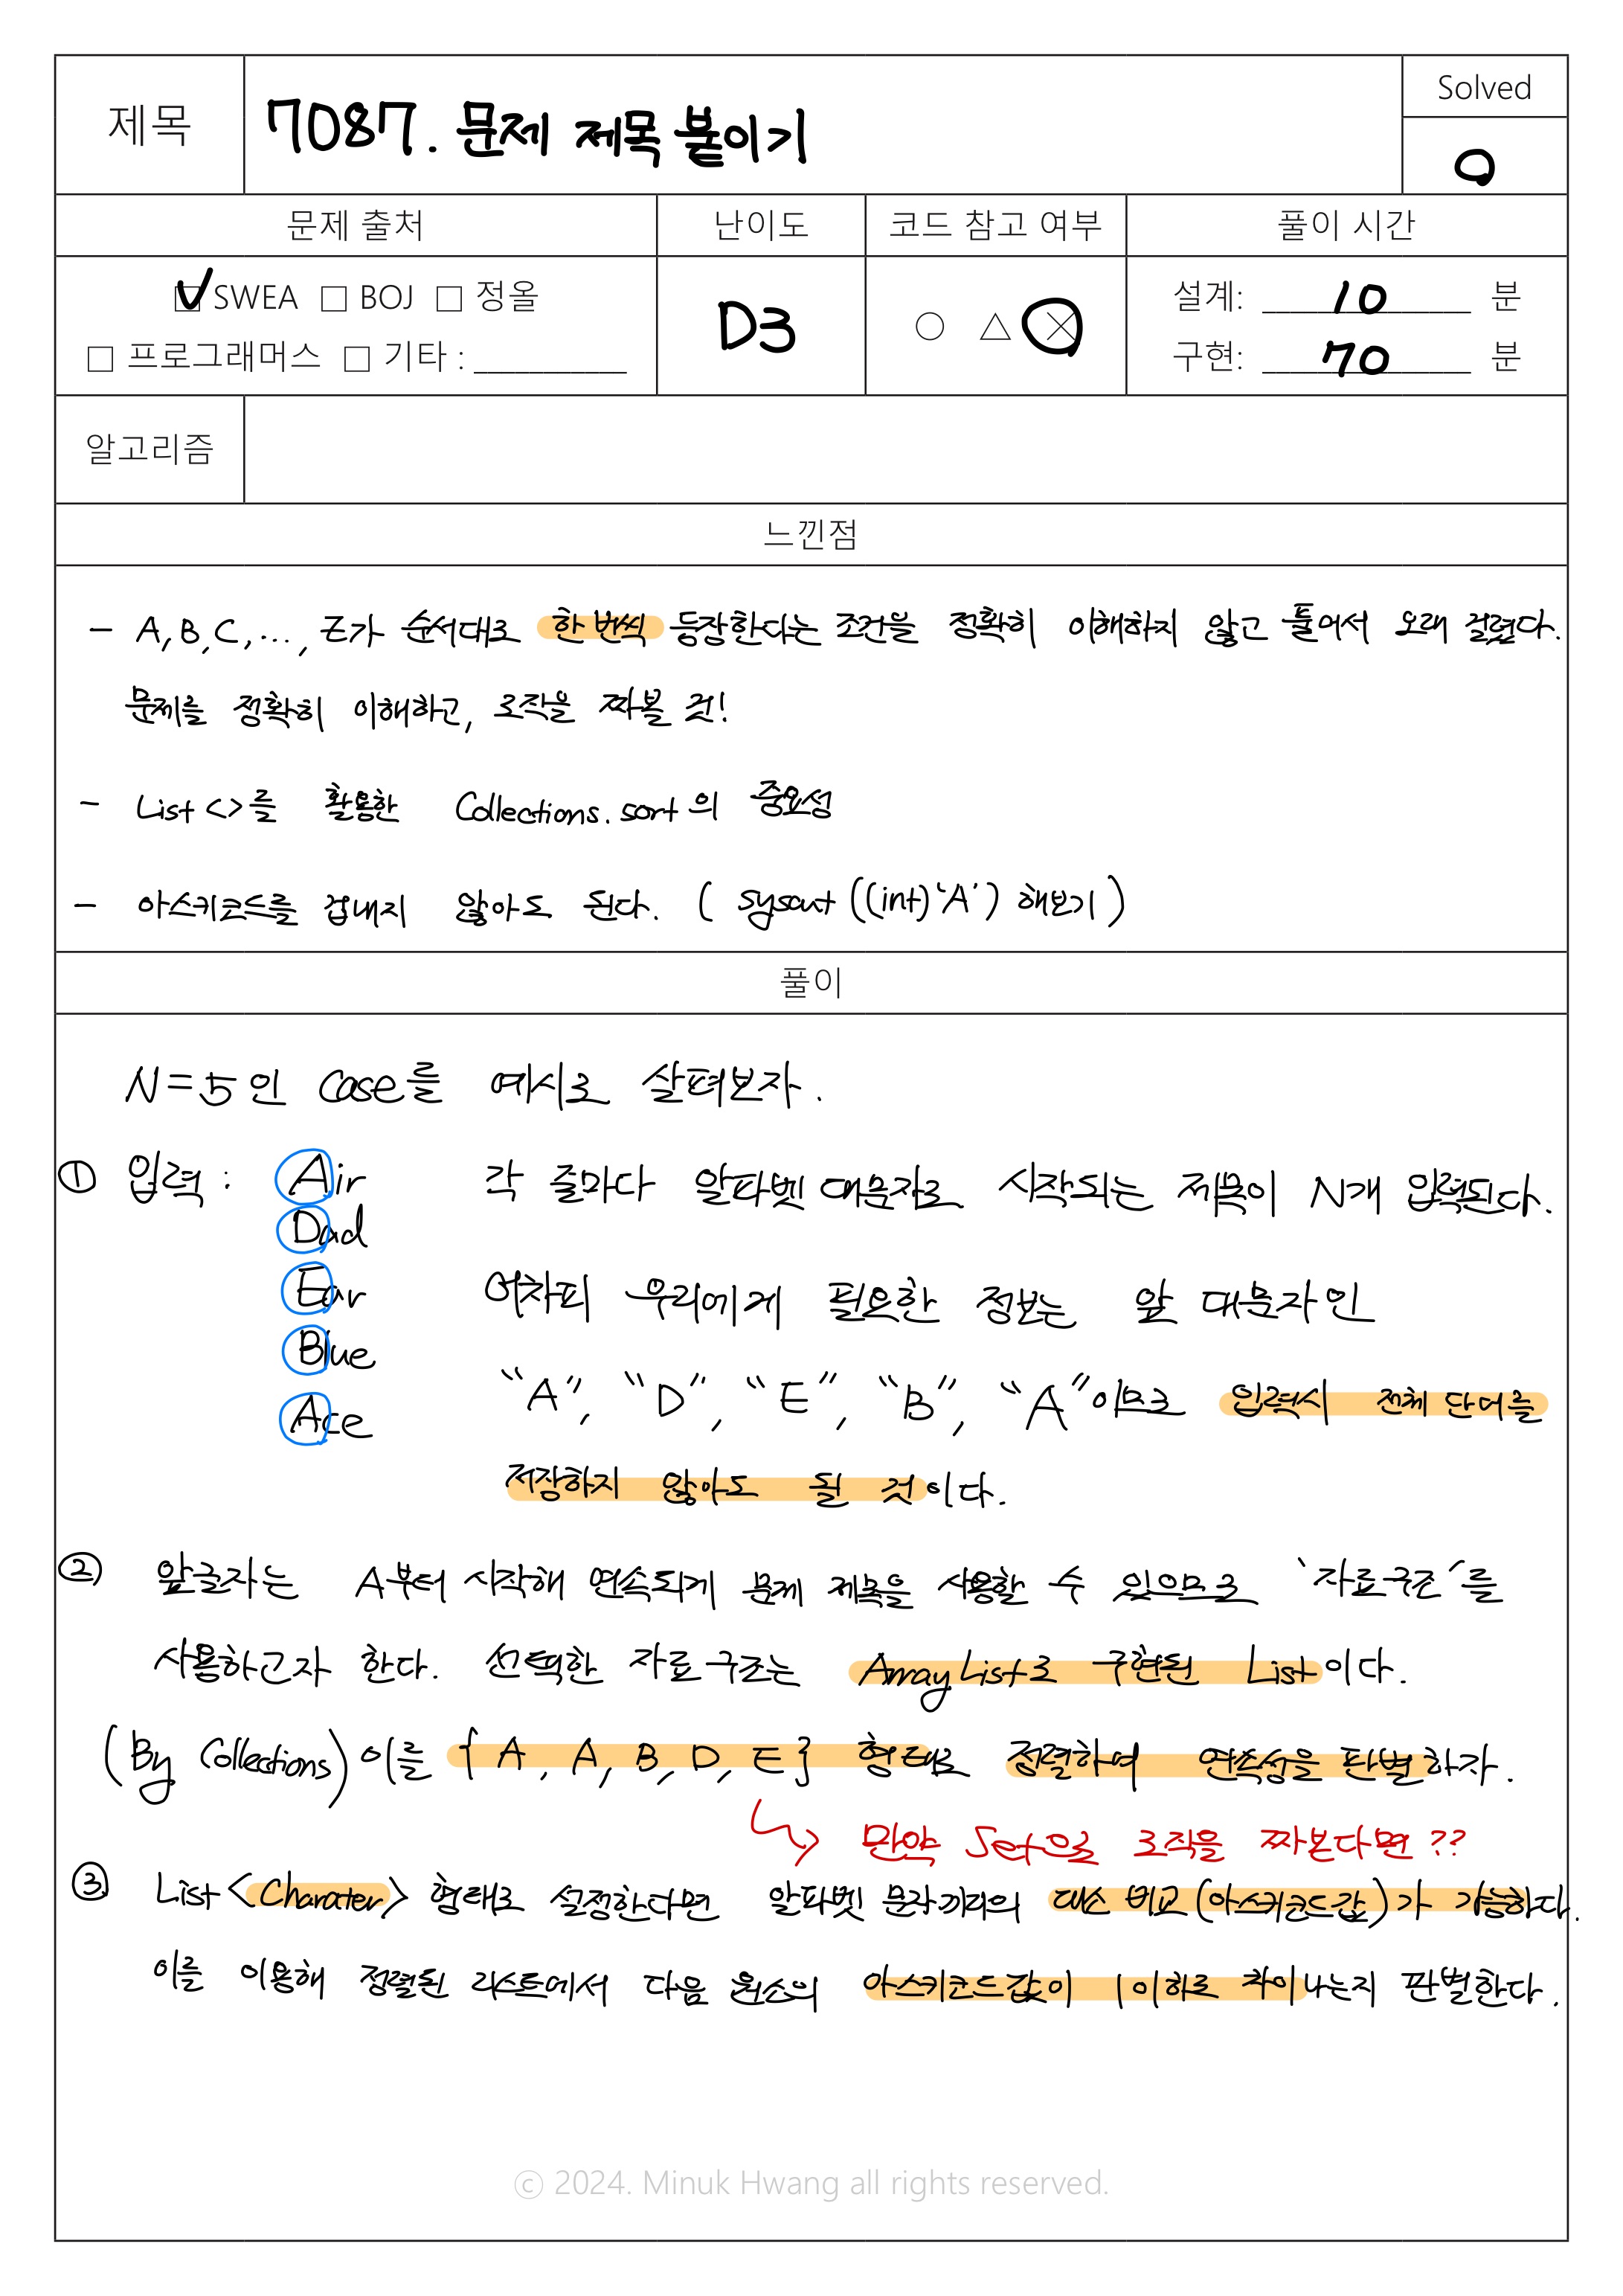 제목
7087. 문제 제목 붙이기
Solved
O
문제 출처
난이도
코드 참고 여부
풀이 시간
☑ SWEA □ BOJ □ 정올
□ 프로그래머스 □ 기타 : __________
D3
○ △ ✕
설계: 10 분
구현: 70 분
알고리즘
느낀점
- A, B, C, ..., Z가 순서대로 한 번씩 등장한다는 조건을 정확히 이해하지 않고 풀어서 오래 걸렸다.
문제를 정확히 이해하고, 로직을 짜볼 것!
- List <>를 활용한 Collections.sort의 중요성
- 아스키코드를 겁내지 않아도 된다. ( sysout ((int)'A') 해보기 )
풀이
N=5인 Case를 예시로 살펴보자.
① 입력 : Air 각 줄마다 알파벳 대문자로 시작되는 제목이 N개 입력된다.
Dad
Ear 어차피 우리에게 필요한 정보는 앞 대문자인
Blue
Ace "A", "D", "E", "B", "A"이므로 입력시 전체 단어를
저장하지 않아도 될 것이다.
② 앞글자는 A부터 시작해 연속되게 문제 제목을 사용할 수 있으므로 '자료구조'를
사용하고자 한다. 선택한 자료구조는 ArrayList로 구현된 List이다.
(By Collections) 이를 { A, A, B, D, E } 형태로 정렬하여 연속성을 판별하자.
↳ 만약 Set으로 로직을 짜본다면??
③ List <Charater> 형태로 설정한다면 알파벳 문자끼리의 대소 비교(아스키코드값)가 가능하다.
이를 이용해 정렬된 리스트에서 다음 원소의 아스키코드값이 1이하로 차이나는지 판별한다.
ⓒ 2024. Minuk Hwang all rights reserved.